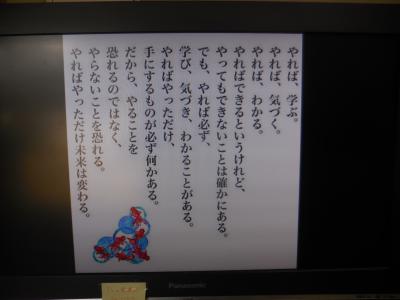 やれば、学ぶ。
やれば、気づく。
やれば、わかる。
やればできるというけれど、
やってもできないことは確かにある。
でも、やれば必ず、
学び、気づき、わかることがある。
やればやっただけ、
手にするものが必ず何かある。
だから、やることを
恐れるのではなく、
やらないことを恐れる。
やればやっただけ未来は変わる。
Panasonic